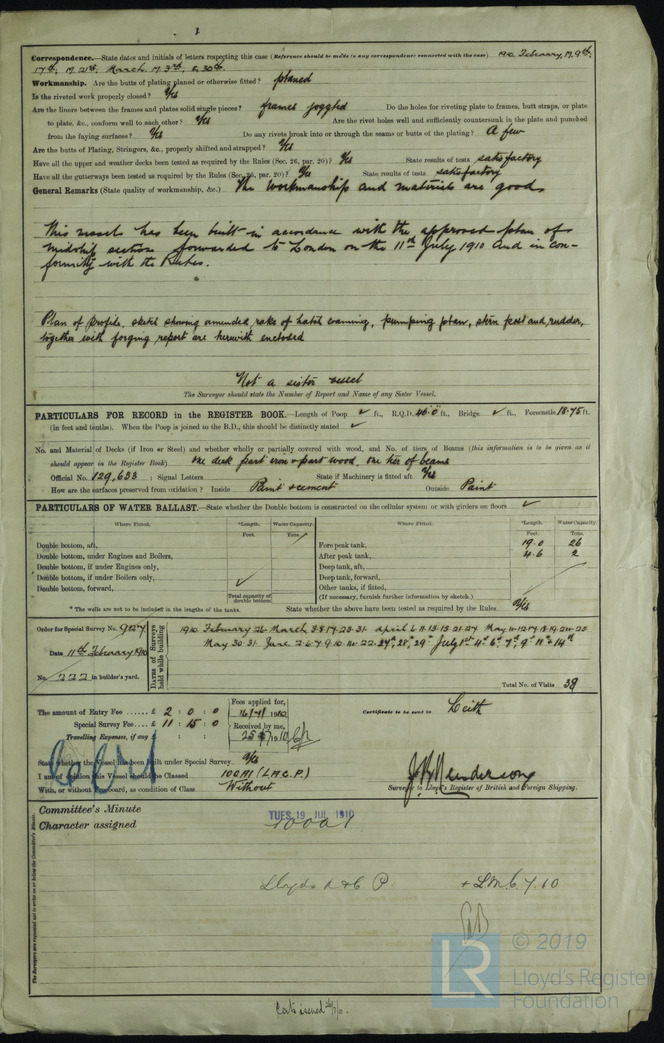 Correspondence.—State dates and initials of letters respecting this case (Reference should be made to any correspondence connected with the case) 1910 February, M. 9th,
17th, M. 21st, March. M. 3rd, & 30th
Workmanship. Are the butts of plating planed or otherwise fitted? planed
Is the riveted work properly closed? Yes
Are the liners between the frames and plates solid single pieces? frames joggled Do the holes for riveting plate to frames, butt straps, or plate
to plate, &c., conform well to each other? Yes Are the rivet holes well and sufficiently countersunk in the plate and punched
from the faying surfaces? Yes Do any rivets break into or through the seams or butts of the plating? A few
Are the butts of Plating, Stringers, &c., properly shifted and strapped? Yes
Have all the upper and weather decks been tested as required by the Rules (Sec. 26, par. 20)? Yes State results of tests satisfactory
Have all the gutterways been tested as required by the Rules (Sec. 26, par. 20)? Yes State results of tests satisfactory
General Remarks (State quality of workmanship, &c.) The workmanship and materials are good
This vessel has been built in accordance with the approved plan of
midship section forwarded to London on the 11th July 1910 and in con-
formity with the Rules.
Plan of profile, sketch showing amended rake of hatch coaming, pumping plan, stern post and rudder,
together with forging report are herewith enclosed
Not a sister vessel
The Surveyor should state the Number of Report and Name of any Sister Vessel.
PARTICULARS FOR RECORD in the REGISTER BOOK.—Length of Poop ✓ ft., R.Q.D. 46.0 ft., Bridge ✓ ft., Forecastle 18.75 ft.
(In feet and tenths). When the Poop is joined to the B.D., this should be distinctly stated ✓
No. and Material of Decks (if Iron or Steel) and whether wholly or partially covered with wood, and No. of tiers of Beams (this information is to be given as it
should appear in the Register Book) One deck, part iron & part wood, one tier of beams
Official No. 129,633 ; Signal Letters State if Machinery is fitted aft Yes
How are the surfaces preserved from oxidation? Inside Paint & cement Outside Paint
PARTICULARS OF WATER BALLAST.—State whether the Double bottom is constructed on the cellular system or with girders on floors ✓
Where Fitted. *Length. Water Capacity. Where Fitted. *Length. Water Capacity.
Feet. Tons. Feet. Tons.
Double bottom, aft, Fore peak tank, 19.0 26
Double bottom, under Engines and Boilers, After peak tank, 4.6 2
Double bottom, if under Engines only, Deep tank, aft,
Double bottom, if under Boilers only, ✓ Deep tank, forward,
Double bottom, forward, Other tanks, if fitted,
Total capacity of double bottom (If necessary, furnish further information by sketch.)
* The wells are not to be included in the lengths of the tanks. State whether the above have been tested as required by the Rules Yes
Order for Special Survey No. 9027
Date 11th February 1910
No. 222 in builder's yard.
DATES of Surveys held while building
1910. February 26. March 3.8.17.23.31. April 6.11.13.15.21.27. May 11.12.17.18.19.20.25
May 30.31. June 2.6.7.9.10.14.22.27th, 28th, 29th July 1st 4th 6th 7th 9th 11th & 14th
Total No. of Visits 38
The amount of Entry Fee £ 2 : 0 : 0 Fees applied for, 16/7/1910 Certificate to be sent to Leith
Special Survey Fee £ 11 : 15 : 0 Received by me,
Travelling Expenses, if any : : 25/7/1910
State whether the Vessel has been built under Special Survey Yes
I am of opinion this Vessel should be Classed 100A1 (L.A.C.P.)
With, or without Freeboard, as condition of Class Without
J B Henderson
Surveyor to Lloyd's Register of British and Foreign Shipping.
Committee's Minute TUES. 19 JUL 1910
Character assigned 100A1
Lloyds A & C P. + L.M.C. 7.10
The Surveyors are requested not to write on or below the Committee's Minute.
© 2019
LR Lloyd's Register
Foundation